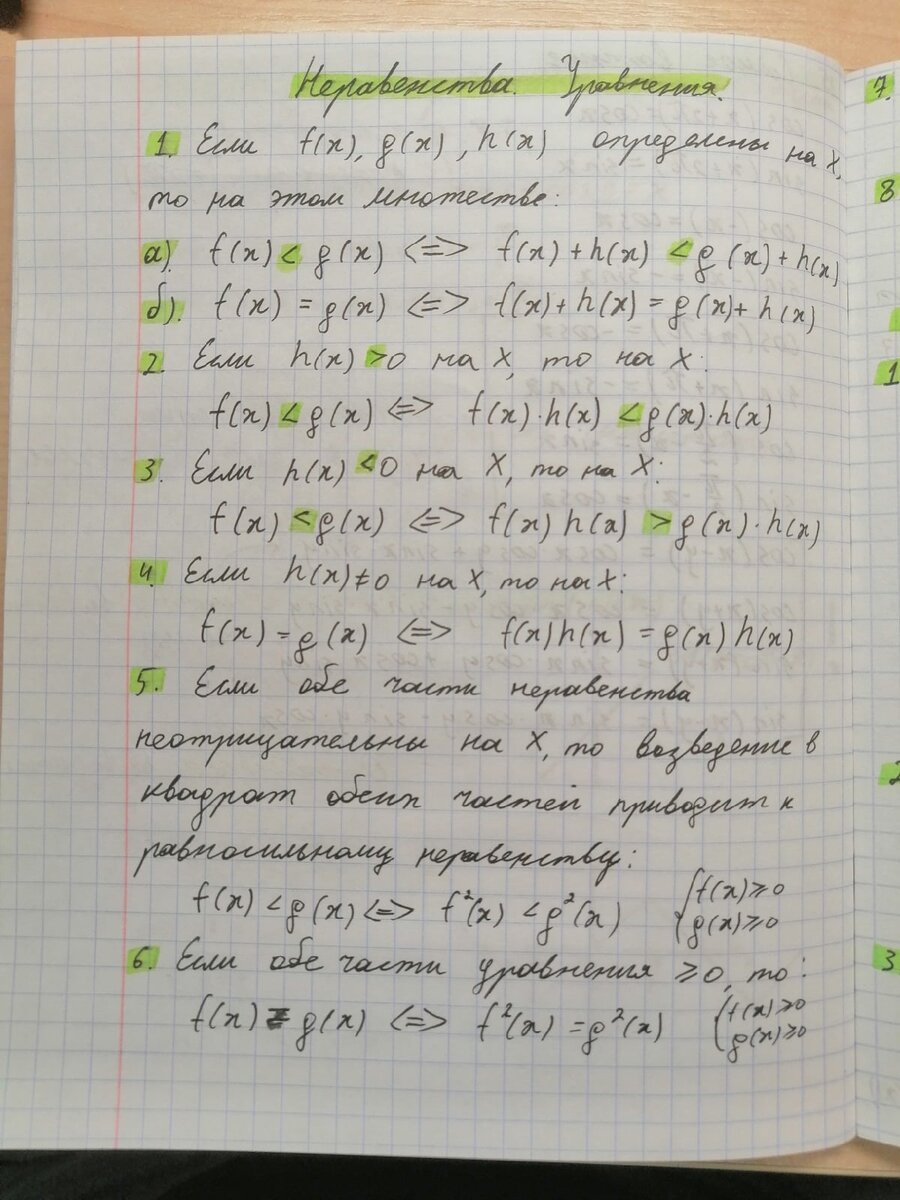 Неравенства. Уравнения.
1. Если f(x), g(x), h(x) определены на X,
то на этом множестве:
а). f(x) < g(x) <=> f(x) + h(x) < g(x) + h(x)
б). f(x) = g(x) <=> f(x) + h(x) = g(x) + h(x)
2. Если h(x) > 0 на X, то на X:
f(x) < g(x) <=> f(x)·h(x) < g(x)·h(x)
3. Если h(x) < 0 на X, то на X:
f(x) < g(x) <=> f(x) h(x) > g(x)·h(x)
4. Если h(x) ≠ 0 на X, то на X:
f(x) = g(x) <=> f(x) h(x) = g(x) h(x)
5. Если обе части неравенства
неотрицательны на X, то возведение в
квадрат обеих частей приводит к
равносильному неравенству:
f(x) < g(x) <=> f²(x) < g²(x) { f(x) ≥ 0
g(x) ≥ 0
6. Если обе части уравнения ≥ 0, то:
f(x) = g(x) <=> f²(x) = g²(x) { f(x) ≥ 0
g(x) ≥ 0
7.
8
1
2
3